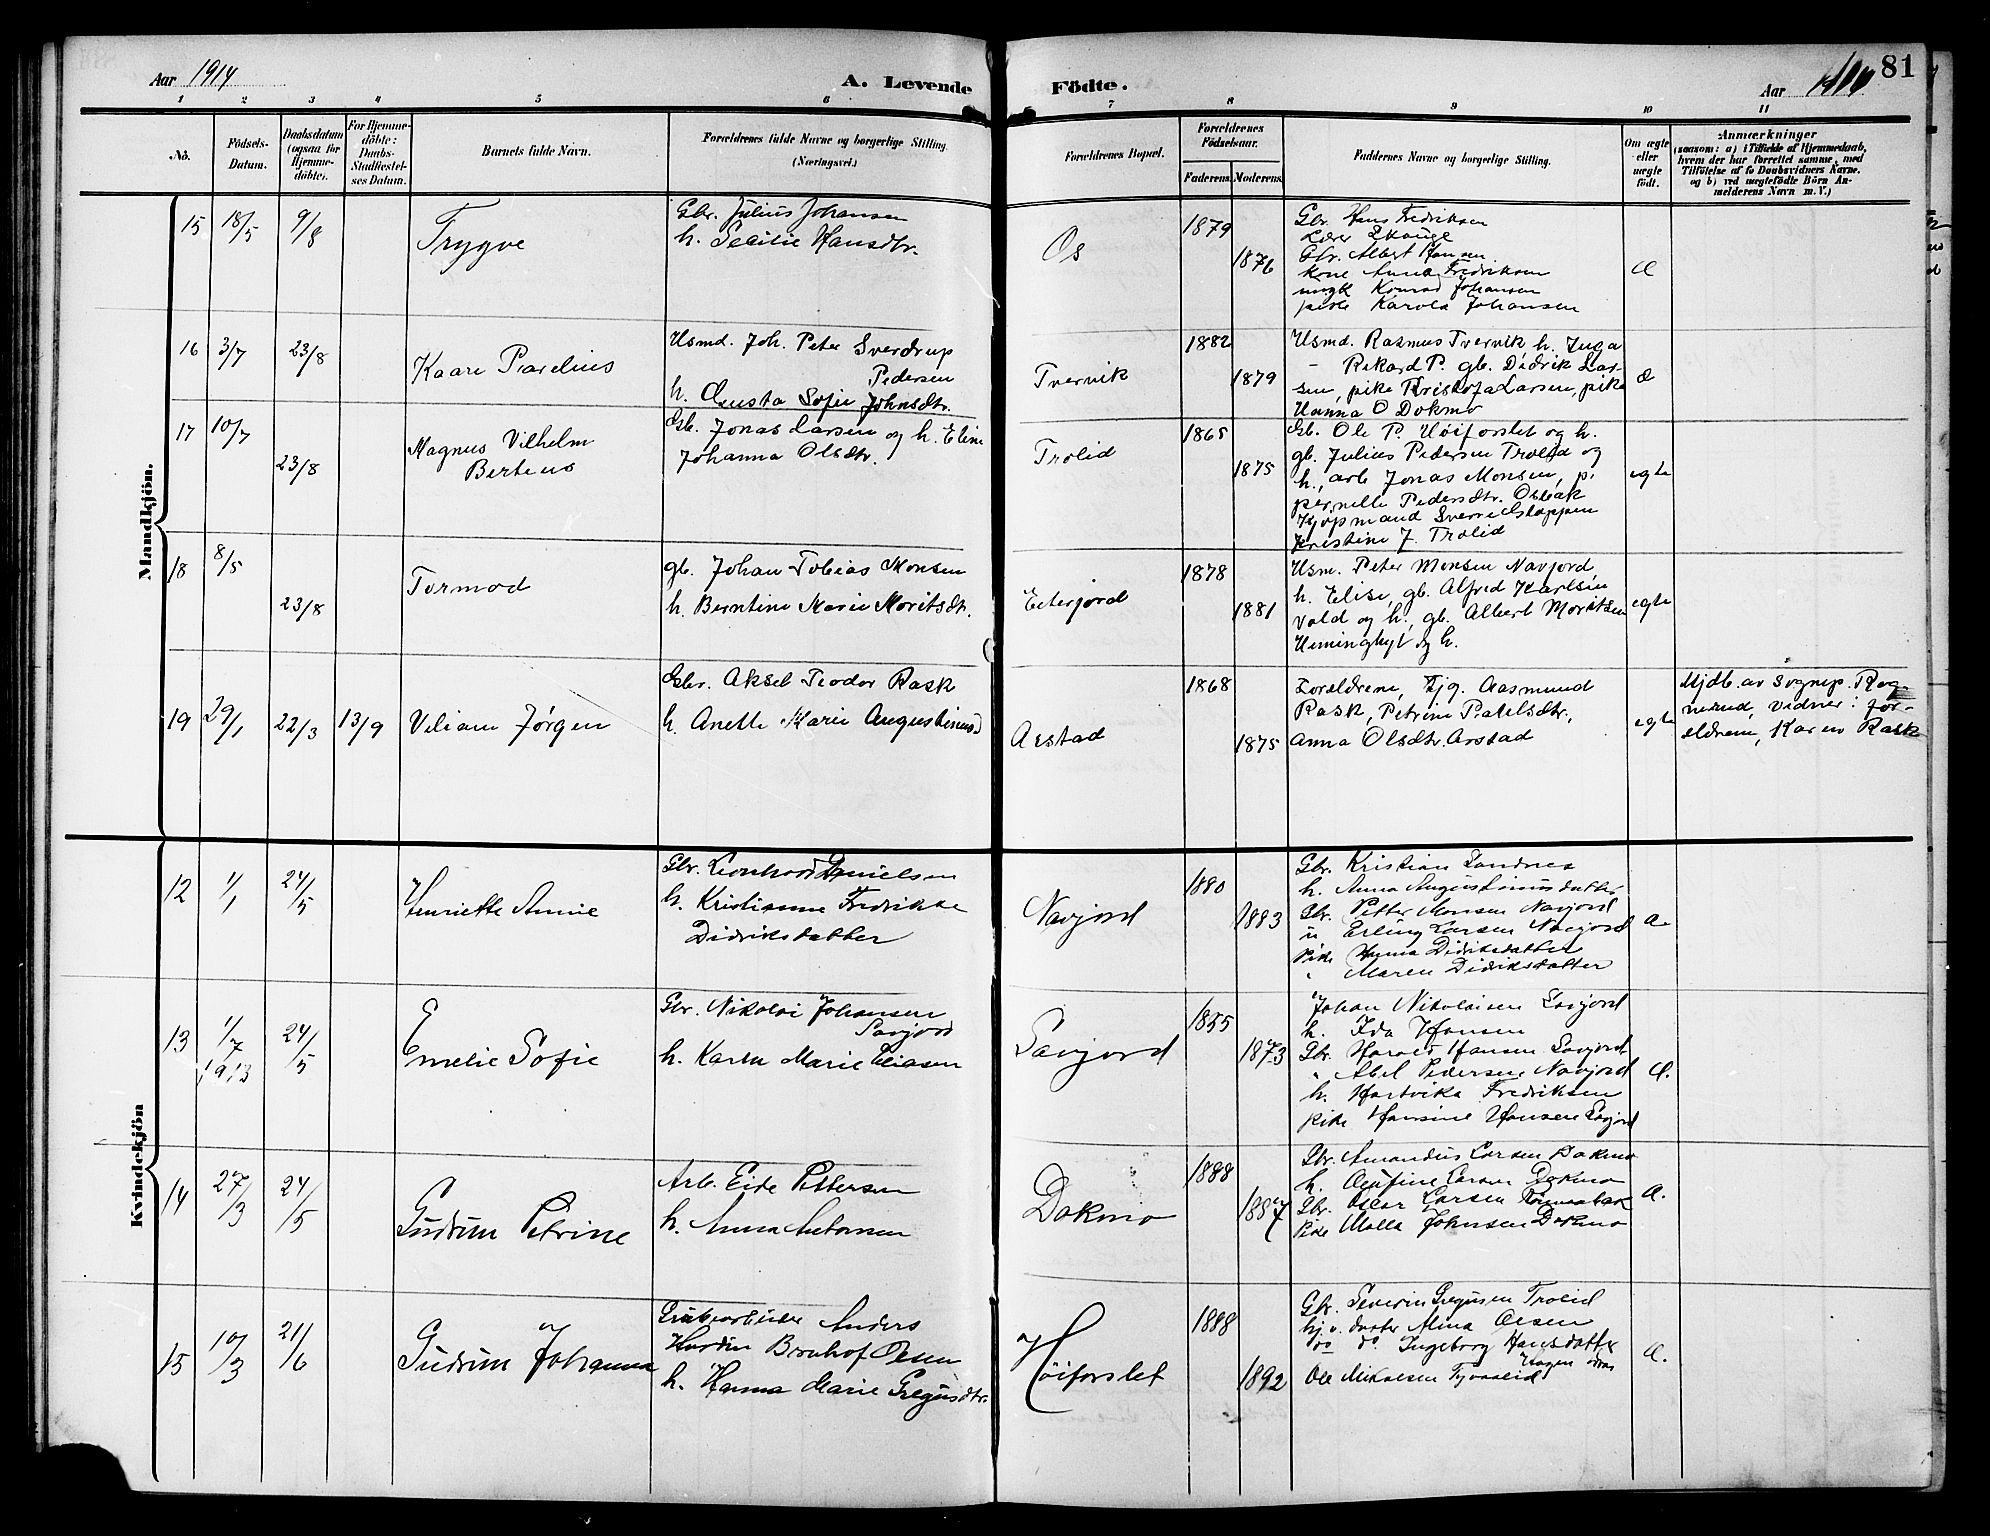 Aar 1914
A. Levende
Födte.
Aar
81
1 2 3 4 5 6 7 8 9 10 11
No.
Födsels-
Datum.
Daabsdatum
(ogsaa for
Hjemme-
döbte).
For Hjemme-
döbte:
Daabs-
Stadfæstel-
ses Datum.
Barnets fulde Navn.
Forældrenes fulde Navne og borgerlige Stilling.
(Næringsvei.)
Forældrenes Bopæl.
Forældrenes
Födselsaar.
Faderens.
Moderens.
Faddernes Navne og borgerlige Stilling.
Om ægte
eller
uægte
födt.
Anmærkninger
(saasom: a) i Tilfælde af Hjemmedaab,
hvem der har forrettet samme, med
Tilföielse af to Daabsvidners Navne.
og b) ved uægtefödte Börn An-
melderens Navn m. V.)
Mandkjön.
15
18/5
9/8
Trygve
Gbr. Julius Johansen
h. Secilie Hansdtr.
Os
1879
1876
Gbr. Hans Fredriksen
Lærer Skauge
Gbr. Albert Hansen
kone Anna Fredriksen
ungk Konrad Johansen
pike Karola Johansen
16
3/7
23/8
Kaare Parelius
Husmd. Joh. Peter Sverdrup
Pedersen
h. Gusta Sofie Johnsdtr.
Tvervik
1882
1879
Husmd. Rasmus Tvervik h. Inga
- Rikard P. gb. Didrik Lar-
sen, pike Kristofa Larsen, pike
Hanna O Dokmo
17
10/7
23/8
Magnus Vilhelm
Berteus
Gb. Jonas Larsen og h. Eline
Johanna Olsdtr.
Trolid
1865
1875
Gb. Ole P. Høiforslet og h.
gb. Julius Pedersen Trolid og
h., arb Jonas Monsen, p.
pernelle Pedersdtr. Osbak
Kjøpmand Sverre Støppen
Kristine J. Trolid
egte
18
8/5
23/8
Tormod
gb. Johan Tobias Monsen
h. Berntine Marie Moritsdtr.
Eiterjord
1878
1881
Husm. Peter Monsen Navjord
h. Elise, gb. Alfred Karlsen
Vold og h., gb. Albert Moritsen
Heminghyt og h.
egte
19
29/1
22/3
13/9
Viliam Jørgen
Gbr. Aksel Teodor Rask
h. Anette Marie Augustinusd
Arstad
1868
1875
Forældrene, Kjg. Aasmund
Rask, Petrine Paulsdtr.,
Anna Olsdtr. Arstad
egte
Hjdb. av Sognep. Rog-
nerud, vidner: for-
ældrene, Karen Rask
Kvindekjön
12
1/1
24/5
Henriette Annie
Gbr. Leonhard Danielsen
h. Kristianne Fredrikke
Didriksdatter
Navjord
1880
1883
Gbr. Kristian Sandnes
h. Anna Augustinusdatter
Gbr. Petter Monsen Navjord
u Erling Larsen Navjord
Pike Hanna Didriksdatter
" Maren Didriksdatter
13
1/7
1913
24/5
Emelie Sofie
Gbr. Nikolai Johansen
Savjord
h. Karen Marie Eliasen
Savjord
1855
1873
Johan Nikolaisen Savjord
h. Ida Hansen
Gbr. Harald Hansen Savjord
" Abel Pedersen Navjord
h. Hartvika Fredriksen
pike Hansine Hansen Savjord
14
27/3
24/5
Gudrun Petrine
Arb. Eide Pettersen
h. Anna Antonsen
Dokmo
1888
1887
Gbr. Amandus Larsen Dokmo
h. Larsen Dokmo
Gbr. Oskar Larsen
Pike Malla Johnsen Dokmo
15
10/3
21/6
Gudrun Johanna
Grubearbeider Anders
Hardin Bernhof Olsen
h. Hanna Marie Gregusdtr.
Høiforslet
1888
1892
Gbr. Severin Gregusen Trolid
hj.v. datter Alma Olsen
do do Ingeborg Hansdatter
Ole Mikalsen